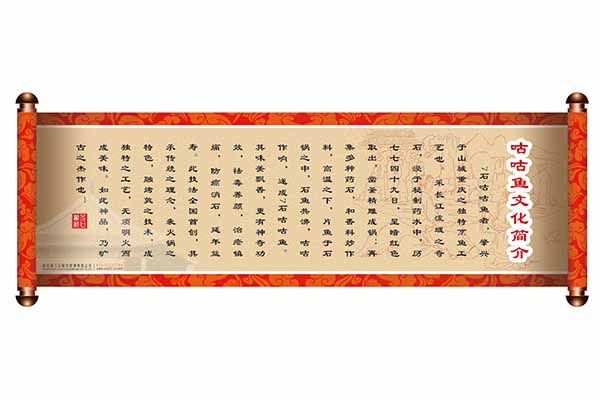 咕咕鱼文化简介
7石咕咕鱼者，肇兴
于山城重庆之独特烹鱼工
艺也 采长江流域之奇
石 浸于秘制药水中历
七七四十九日，呈暗红色
取出，凿釜精雕成锅；再
集多种药石 和香料炒作
料，高温之下，片鱼于
锅之中，石鱼共沸，咕咕
作响，遂成7石咕咕鱼。
其味美飘香，更有神奇功
效，祛毒养颜，治老镇
痛，防癌消石，延年益
寿。此技法全国首创，其
承传统之理念，乘火锅之
特色，融烤炙之技术，成
独特之工艺，无须明火而
成美味。如此神品，乃旷
古之杰作也！